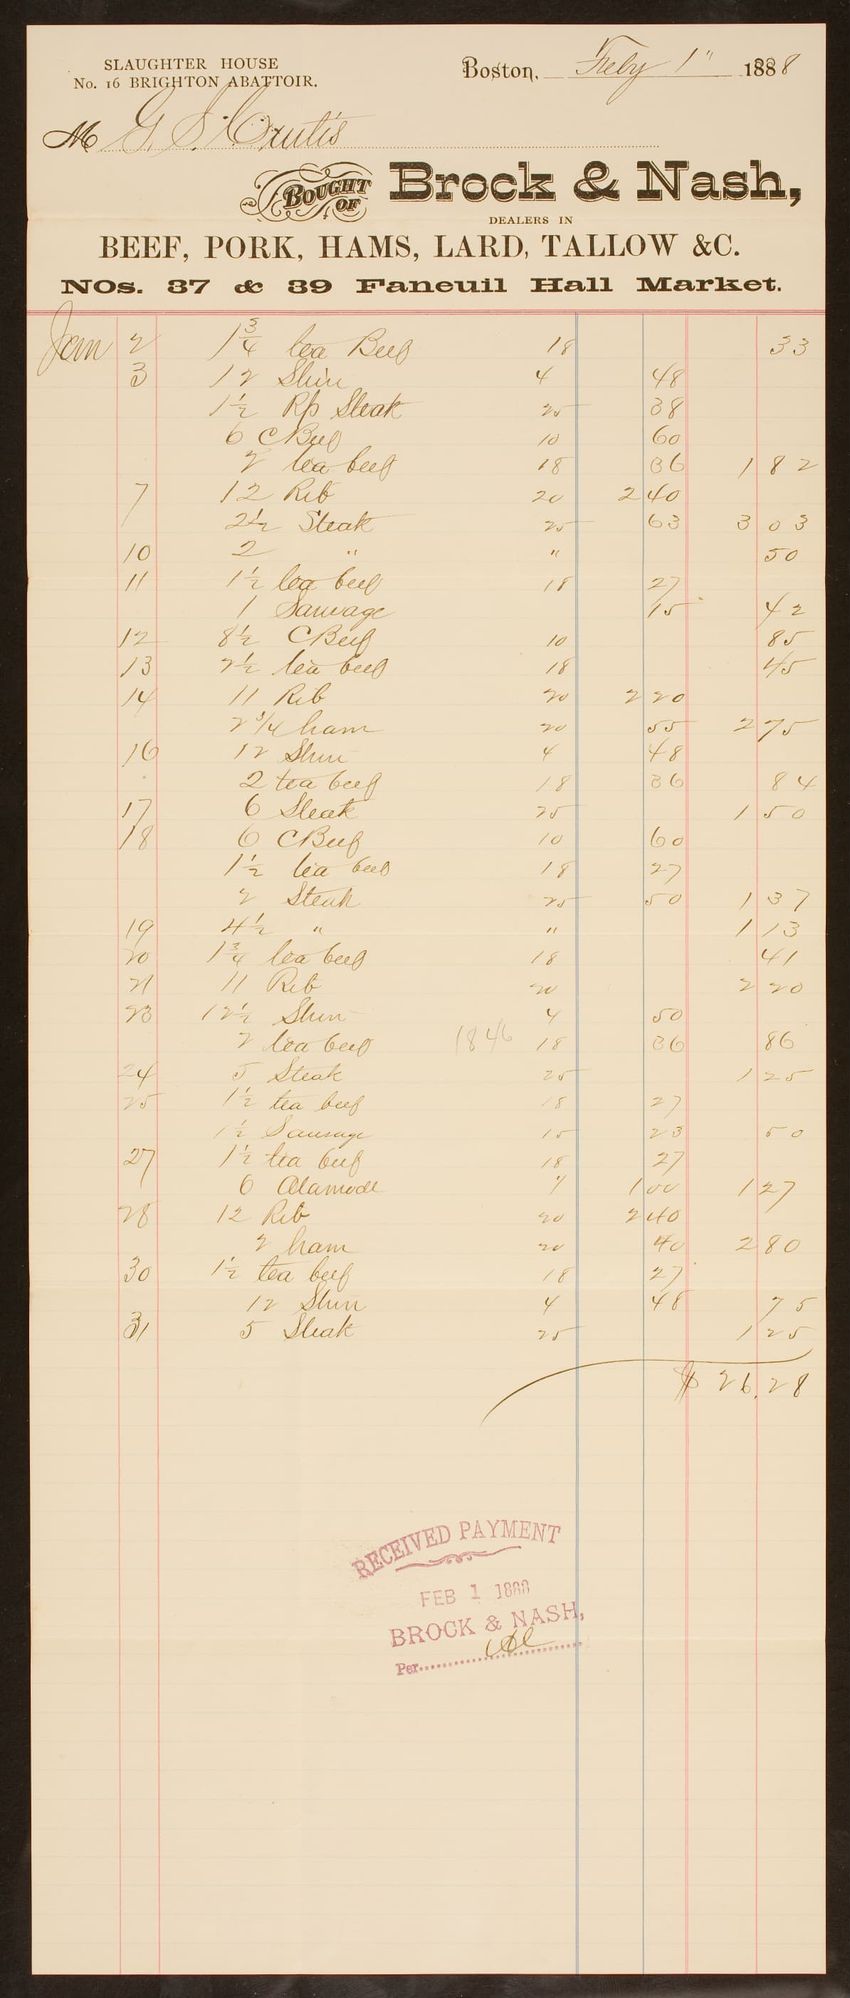 SLAUGHTER HOUSE
No. 16 BRIGHTON ABATTOIR.
Boston, Feby 1" 1888
M G. S. Curtis
BOUGHT OF Brock & Nash,
DEALERS IN
BEEF, PORK, HAMS, LARD, TALLOW &C.
NOs. 37 & 39 Faneuil Hall Market.
Jan 2 1 3/4 tea Beef 18 33
3 12 Shin 4 48
1 1/2 Rp Steak 25 38
6 C Beef 10 60
2 tea beef 18 36 1 82
7 12 Rib 20 2 40
2 1/2 Steak 25 63 3 03
10 2 " " 50
11 1 1/2 tea beef 18 27
1 Sausage 15 42
12 8 1/2 C Beef 10 85
13 2 1/2 tea beef 18 45
14 11 Rib 20 2 20
2 3/4 ham 20 55 2 75
16 12 Shin 4 48
2 tea beef 18 36 84
17 6 Steak 25 1 50
18 6 C Beef 10 60
1 1/2 tea beef 18 27
2 Steak 25 50 1 37
19 4 1/2 " " 1 13
20 1 3/4 tea beef 18 41
21 11 Rib 20 2 20
23 12 1/2 Shin 4 50
2 tea beef 1846 18 36 86
24 5 Steak 25 1 25
25 1 1/2 tea beef 18 27
1 1/2 Sausage 15 23 50
27 1 1/2 tea beef 18 27
6 Alamode 1 00 1 27
28 12 Rib 20 2 40
2 ham 20 40 2 80
30 1 1/2 tea beef 18 27
12 Shin 4 48 75
31 5 Steak 25 1 25
$ 26.28
RECEIVED PAYMENT
FEB 1 1888
BROCK & NASH,
Per